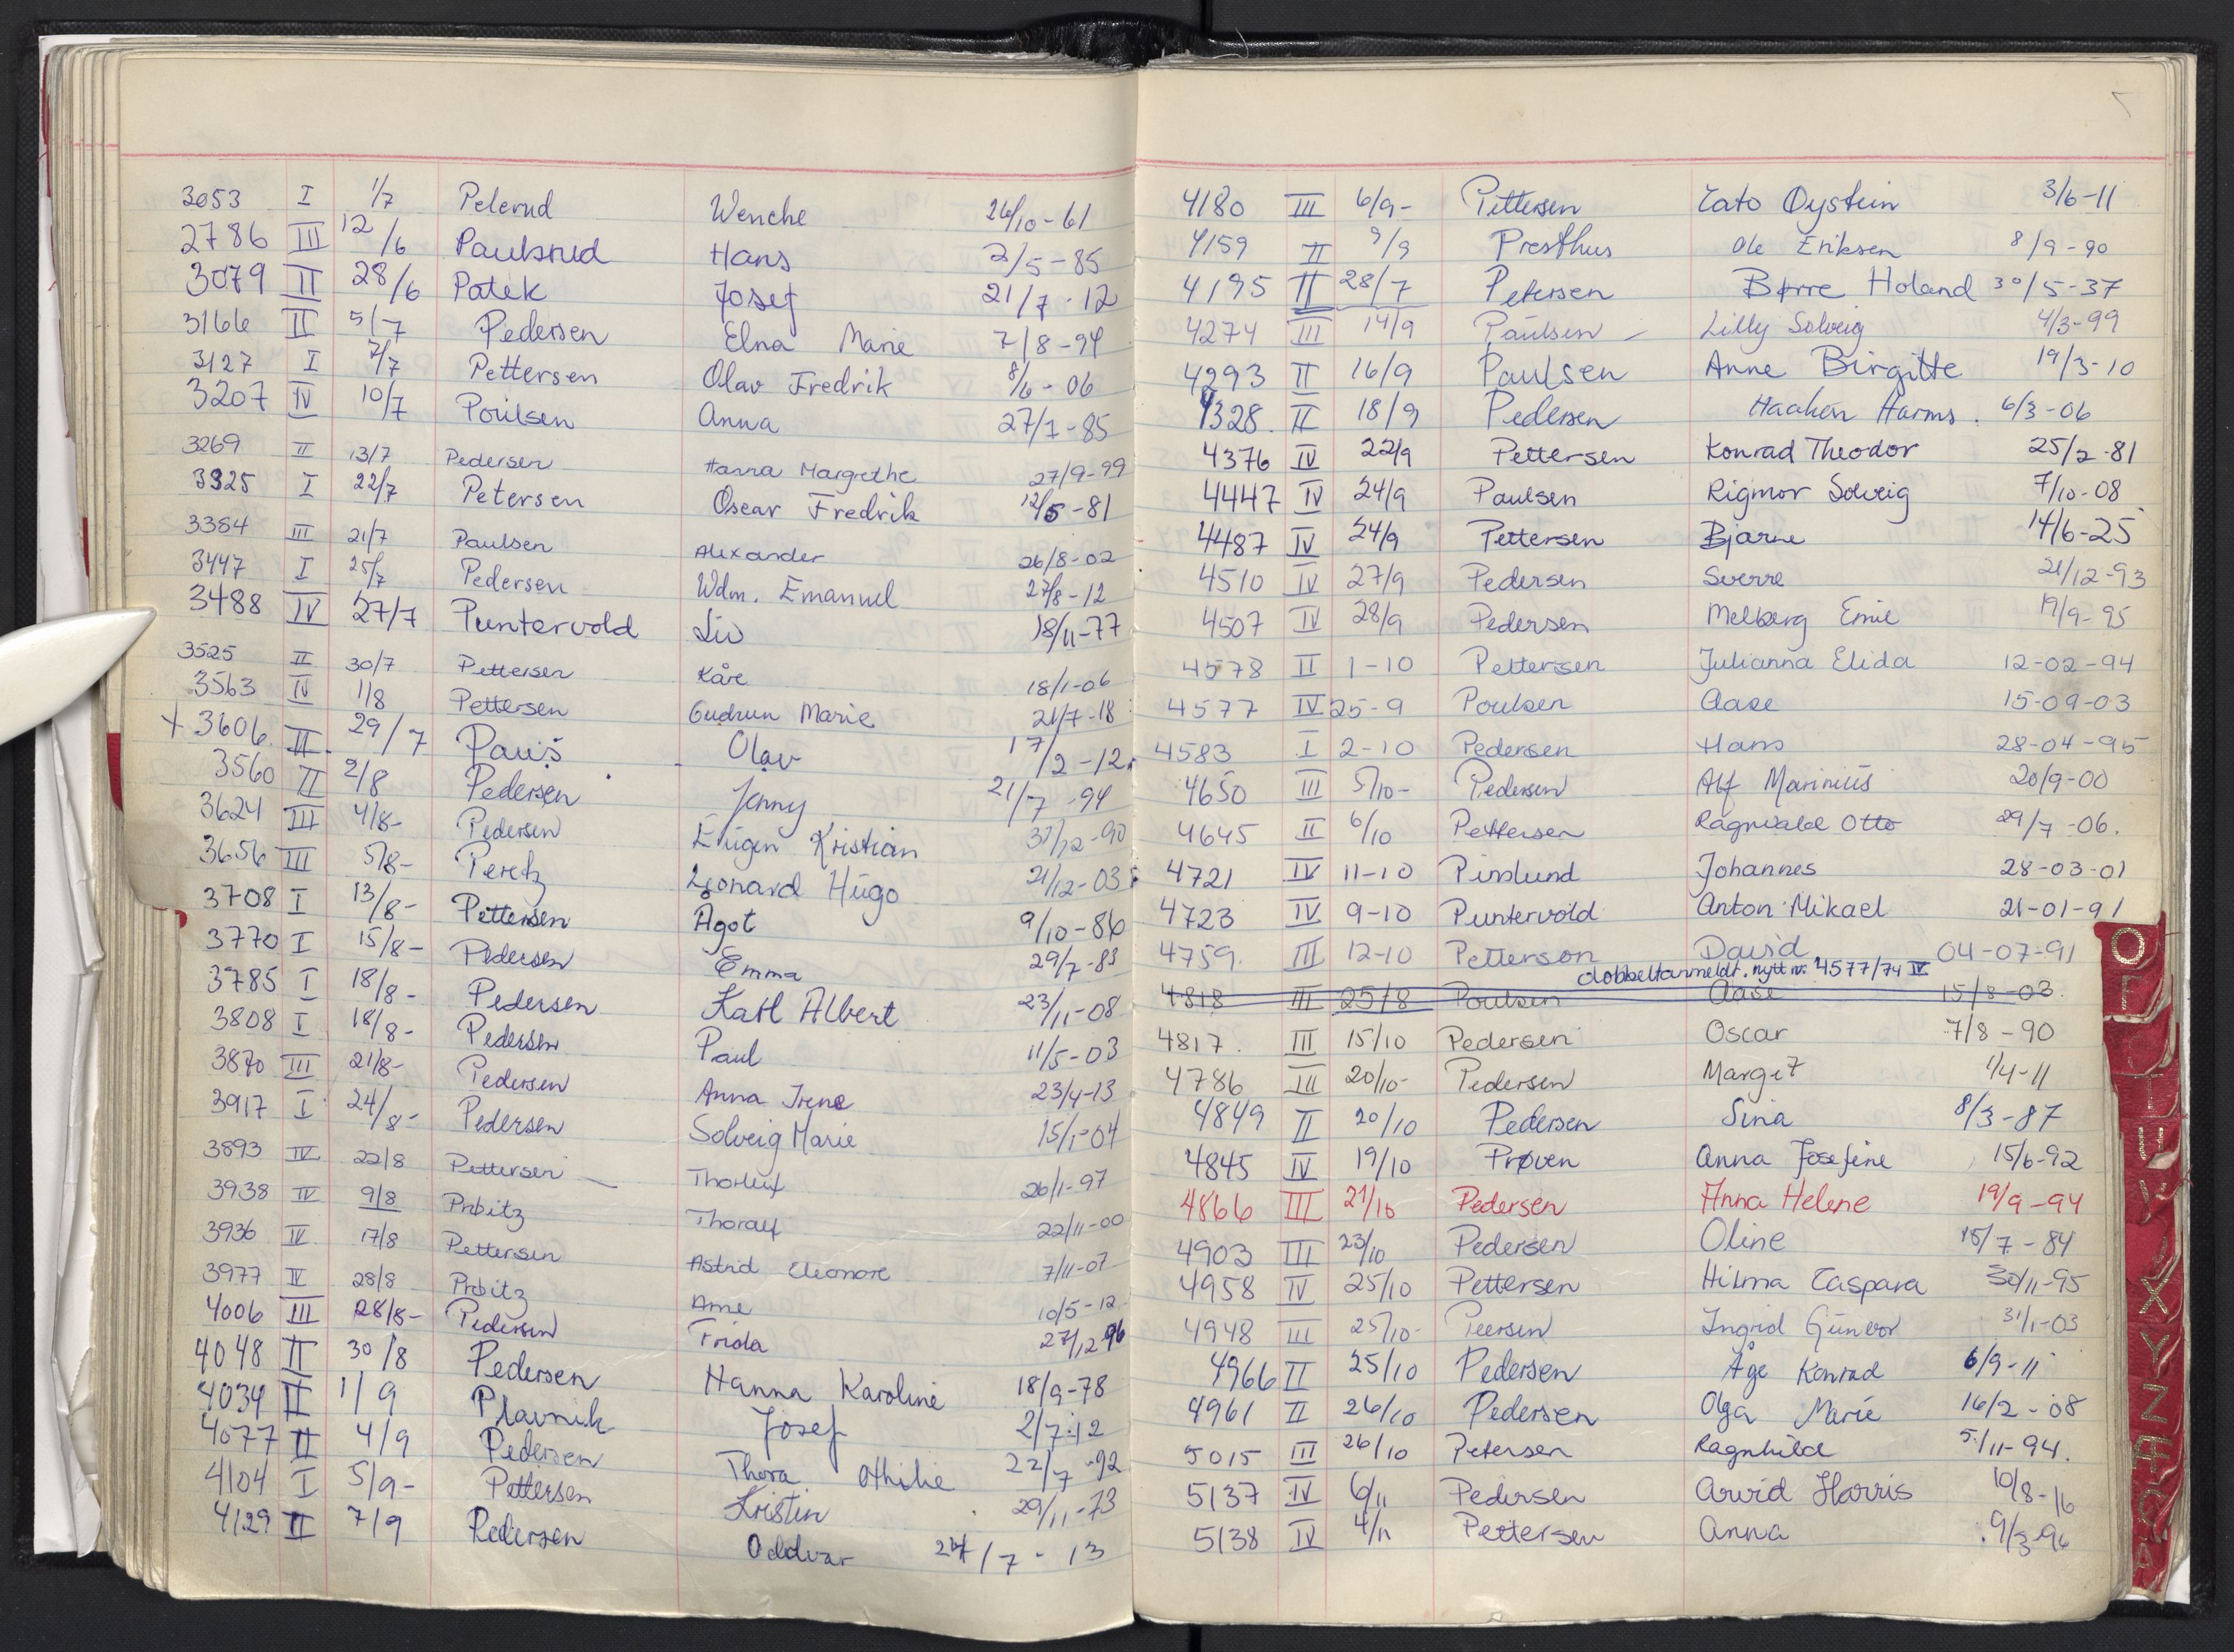 3053 I 1/7 Pelerud Wenche 26/10-61
2786 III 12/6 Paulsrud Hans 2/5-85
3079 II 28/6 Patek Josef 21/7-12
3166 II 5/7 Pedersen Elna Marie 7/8-94
3127 I 7/7 Pettersen Olav Fredrik 8/6-06
3207 IV 10/7 Poulsen Anna 27/7-85
3269 II 13/7 Pedersen Hanna Margrethe 27/9-99
3325 I 22/7 Petersen Oscar Fredrik 12/5-81
3384 III 21/7 Paulsen Alexander 26/8-02
3447 I 25/7 Pedersen Wdm. Emanuel 27/8-12
3488 IV 27/7 Puntervold Liv 18/11-77
3525 II 30/7 Pettersen Kåre 18/1-06
3563 IV 1/8 Pettersen Gudrun Marie 21/7-18
+ 3606 II 29/7 Paus Olav 17/2-12
3560 II 2/8 Pedersen Jenny 21/7-94
3624 III 4/8- Pedersen Eugen Kristian 31/12-90
3656 III 5/8- Peretz Leonard Hugo 21/12-03
3708 I 13/8- Pettersen Agot 9/10-86
3770 I 15/8- Pedersen Emma 29/7-83
3785 I 18/8- Pedersen Karl Albert 23/11-08
3808 I 18/8- Pedersen Paul 11/5-03
3870 III 21/8- Pedersen Anna Irene 23/4-13
3917 I 24/8- Pedersen Solveig Marie 15/1-04
3893 IV 22/8 Pettersen Thorleif 26/1-97
3938 IV 9/8 Prøitz Thoralf 22/11-00
3936 IV 17/8 Pettersen Astrid Eleonore 7/11-07
3977 IV 28/8 Prøitz Arne 10/5-12
4006 III 28/8- Pedersen Frida 27/12 96
4048 II 30/8 Pedersen Hanna Karoline 18/9-78
4034 II 1/9 Plavnik Josef 2/7-12
4077 II 4/9 Pedersen Thora Othilie 22/7-92
4104 I 5/9- Pettersen Kristin 29/11-73
4129 II 7/9 Pedersen Oddvar 24/7-13
4180 III 6/9- Pettersen Cato Øystein 3/6-11
4159 II 9/9 Presthus Ole Eriksen 8/9-90
4195 II 28/7 Petersen Børre Holand 30/5-37
4274 III 14/9 Paulsen Lilly Solveig 4/3-99
4293 II 16/9 Paulsen Anne Birgitte 19/3-10
4328 II 18/9 Pedersen Haakon Harms. 6/3-06
4376 IV 22/9 Pettersen Konrad Theodor 25/2-81
4447 IV 24/9 Paulsen Rigmor Solveig 7/10-08
4487 IV 24/9 Pettersen Bjarne 14/6-25
4510 IV 27/9 Pedersen Sverre 21/12-93
4507 IV 28/9 Pedersen Melberg Emil 19/9-95
4578 II 1-10 Pettersen Julianna Elida 12-02-94
4577 IV 25-9 Poulsen Aase 15-09-03
4583 I 2-10 Pedersen Hans 28-04-95
4650 III 5/10- Pedersen Alf Marinius 20/9-00
4645 II 6/10 Pettersen Ragnvald Otto 29/7-06.
4721 IV 11-10 Pinslund Johannes 28-03-01
4723 IV 9-10 Puntervold Anton Mikael 21-01-91
4759. III 12-10 Petterson David 04-07-91
dobbeltanmeldt. nytt nr. 4577/74 IV
4818 III 25/8 Poulsen Aase 15/8-03.
4817. III 15/10 Pedersen Oscar 7/8-90
4786 III 20/10- Pedersen Margit 1/4-11
4849 II 20/10 Pedersen Sina 8/3-87
4845 IV 19/10 Prøven Anna Josefine 15/6-92
4866 III 21/10 Pedersen Anna Helene 19/9-94
4903 III 23/10 Pedersen Oline 15/7-84
4958 IV 25/10 Pettersen Hilma Caspara 30/11-95
4948 III 25/10- Peersen Ingrid Gunvor 31/1-03
4966 II 25/10 Pedersen Åge Konrad 6/9-11
4961 II 26/10 Pedersen Olga Marie 16/2-08
5015 III 26/10 Petersen Ragnhild 5/11-94.
5137 IV 6/11 Pedersen Arvid Harris 10/8-16
5138 IV 4/11 Pettersen Anna 9/3-96
O
X
Y
Z
Æ